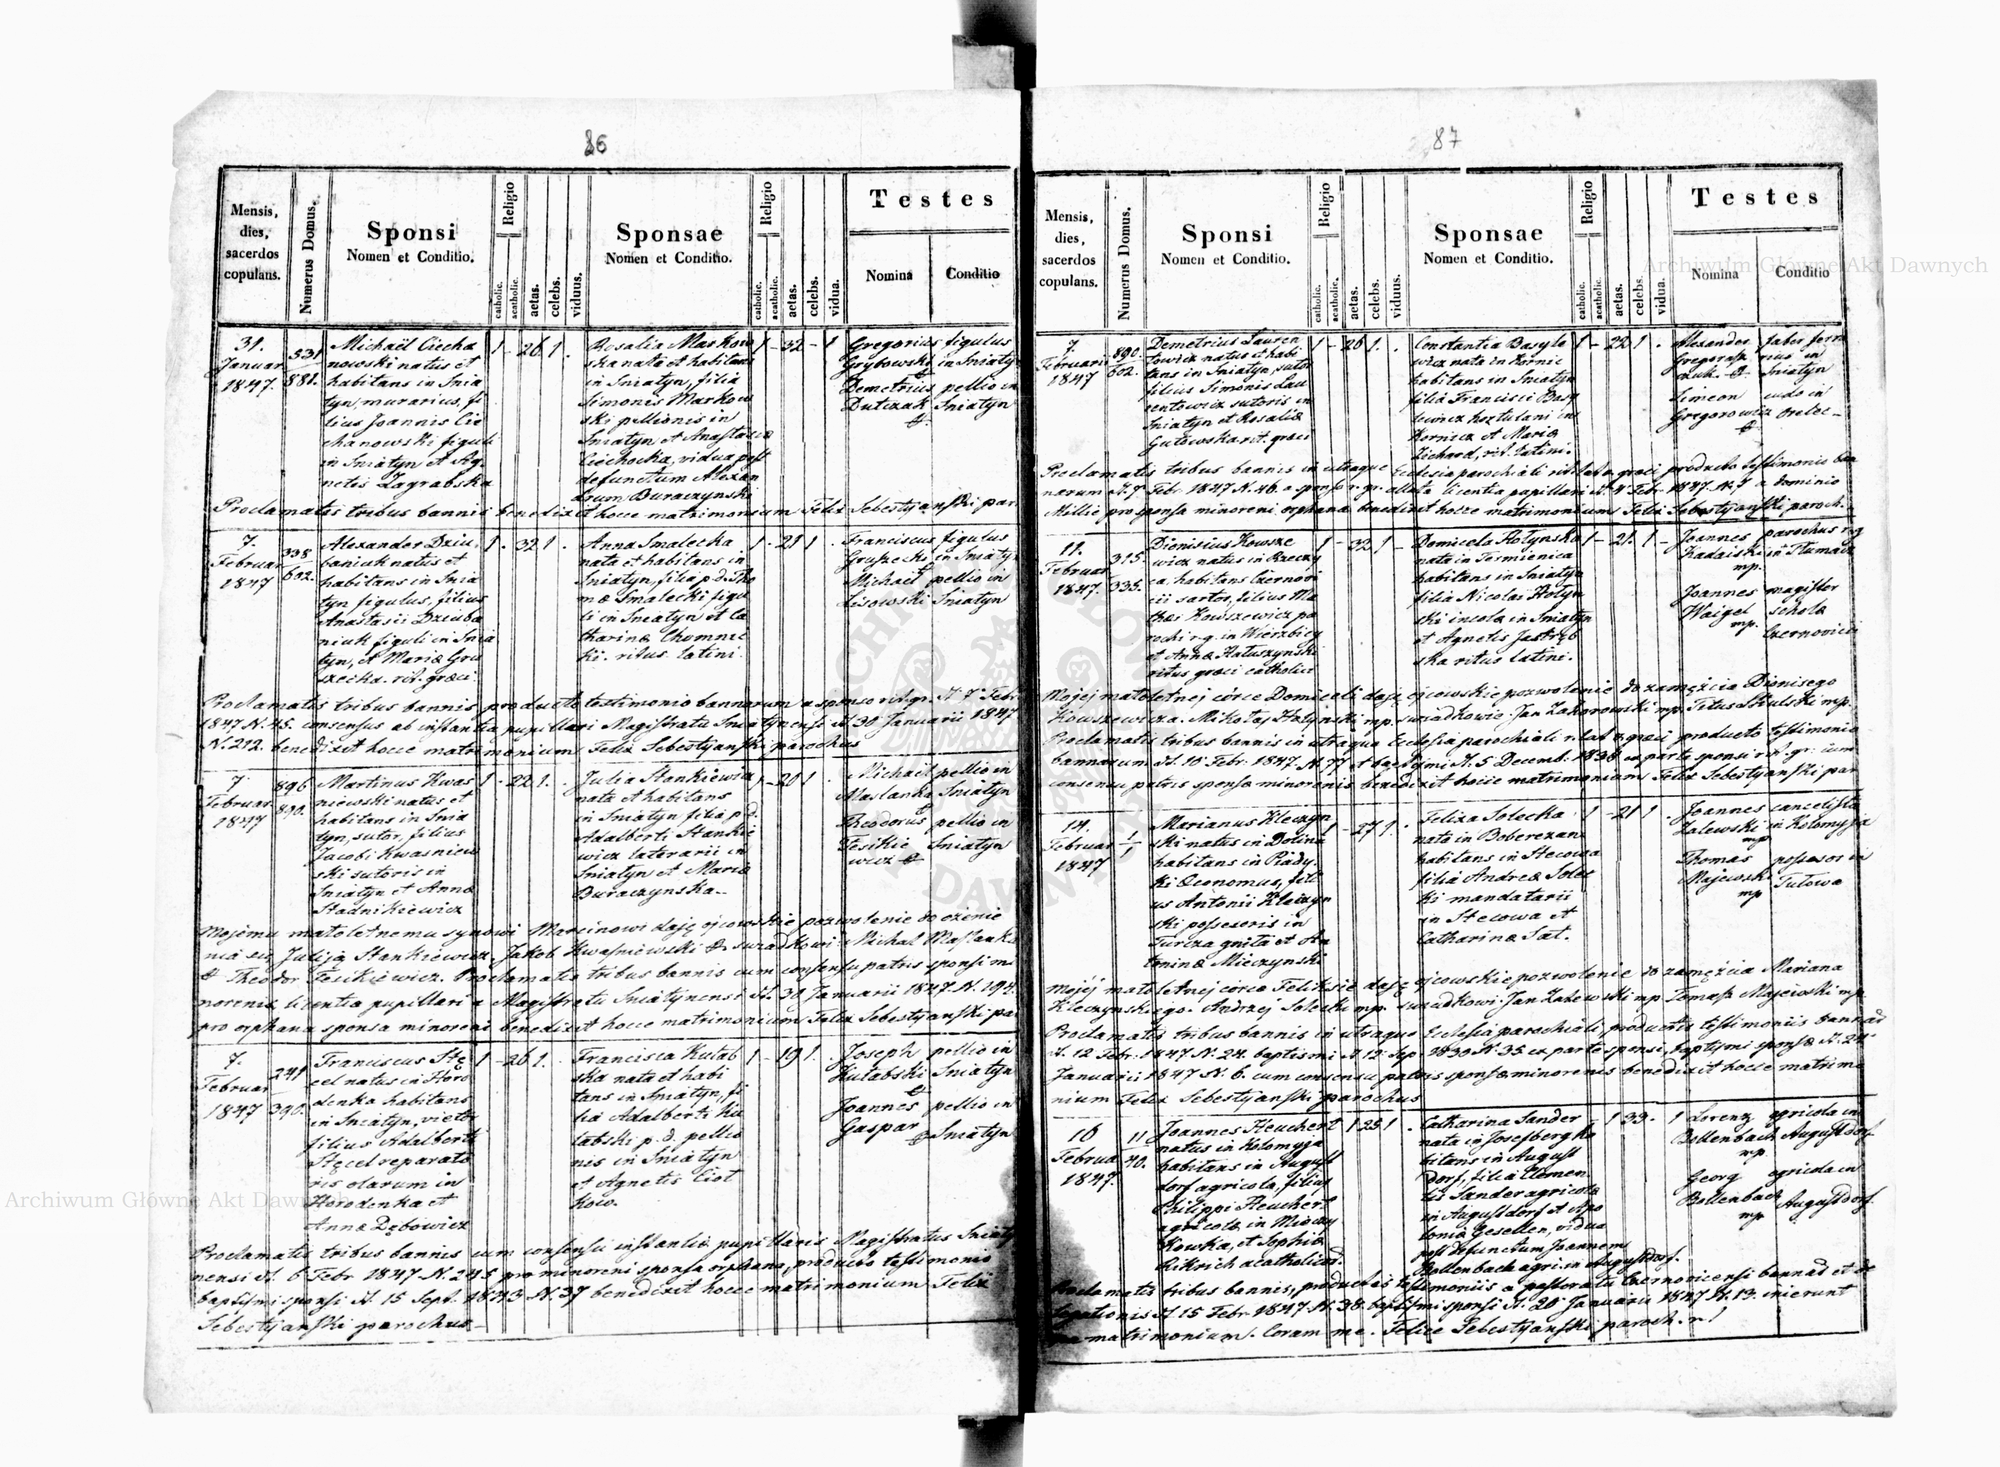 86
Mensis, dies, sacerdos copulans.
Numerus Domus.
Sponsi
Nomen et Conditio.
Religio
catholic.
acatholic.
aetas.
celebs.
viduus.
Sponsae
Nomen et Conditio.
Religio
catholic.
acatholic.
aetas.
celebs.
vidua.
Testes
Nomina
Conditio
31.
Januar
1847.
531
881.
Michael Ciecha
nowski natus et
habitans in Snia
tyn, murarius, fi
lius Joannis Cie
chanowski figuli
in Sniatyn et Ag
netis Zagrabska
1 - 26 1 .
Rosalia Markow
ska nata et habitans
in Sniatyn, filia
Simonis Markow
ski pellionis in
Sniatyn et Anastasiæ
Ciechocka, vidua post
defunctum Alexan
drum Buraczynski
1 - 32 - 1
Gregorius figulus
Grybowski in Sniatyn
Demetrius pellio in
Dutczak Sniatyn
Proclamatis tribus bannis benedixit hocce matrimonium Felix Sebestyanski par.
7.
Februar
1847
338
602.
Alexander Dziu
baniuk natus et
habitans in Snia
tyn figulus, filius
Anastasii Dziuba
niuk figuli in Snia
tyn, et Mariæ Gru
szecka. rit. græci.
1 . 32 1 .
Anna Smalecka
nata et habitans in
Sniatyn, filia p.d. Tho
mæ Smalecki figu
li in Sniatyn et Ca
tharinæ Chomnic
ki. ritus latini.
1 . 21 1 .
Franciscus figulus
in Sniatyn
Michael pellio in
Lisowski Sniatyn
Proclamatis tribus bannis producto testimonio bannorum a sponso rit. gr. d. 7 Febr
1847 N. 45. consensus ab instantia pupillari Magistratu Sniatynensi d. 30 Januarii 1847
N. 212. benedixit hocce matrimonium Felix Sebestyanski parochus
7
Februar
1847
896
890.
Martinus Kwas
niewski natus et
habitans in Snia
tyn, sutor, filius
Jacobi Kwasniew
ski sutoris in
Sniatyn et Annæ
Stadnikiewicz
1 - 22 1 .
Julia Stankiewicz
nata et habitans
in Sniatyn filia p.d.
Adalberti Stankie
wicz laterarii in
Sniatyn et Mariæ
Buraczynska
1 - 20 1 .
Michael pellio in
Maslanka Sniatyn
Theodorus pellio in
Fesikie Sniatyn
wicz
Mojemu małoletnemu synowi Marcinowi daję ojcowskie pozwolenie do ożenie
nia się Julią Stankiewicz. Jakob Kwaśniewski świadkowie Michał Maslanka
Theodor Fesikiewicz. Proclamatis tribus bannis cum consensu patris sponsi mi
norenis licentia pupillari a Magistratu Sniatynensi d. 30 Januarii 1847 N. 194.
pro orphana sponsa minoreni benedixit hocce matrimonium Felix Sebestyanski par
7.
Februar
1847
241
390.
Franciscus Stę
cel natus in Horo
denka habitans
in Sniatyn, vietor
filius Adalberti
Stęcel reparato
ris olarum in
Horodenka et
Anna Dębowicz
1 - 26 1 .
Francisca Kutab
ska nata et habi
tans in Sniatyn, fi
lia Adalberti Ku
tabski p.d. pellio
nis in Sniatyn
et Agnetis Ciot
kow.
1 - 19 1 .
Joseph pellio in
Kutabski Sniatyn
Joannes pellio in
Gaspar Sniatyn
Proclamatis tribus bannis cum consensu instantiæ pupillaris Magistratus Sniaty
nensi d. 6 Febr 1847 N. 245 pro minoreni sponsa orphana, producto testimonio
baptismi sponsi d. 15 Sept. 1843 N. 37 benedixit hocce matrimonium Felix
Sebestyanski parochus
87
Mensis, dies, sacerdos copulans.
Numerus Domus.
Sponsi
Nomen et Conditio.
Religio
catholic.
acatholic.
aetas.
celebs.
viduus.
Sponsae
Nomen et Conditio.
Religio
catholic.
acatholic.
aetas.
celebs.
vidua.
Testes
Nomina
Conditio
7
Februari
1847
890.
602.
Demetrius Lauren
towicz natus et habi
tans in Sniatyn, sutor
filius Simonis Lau
rentowicz sutoris in
Sniatyn et Rosaliæ
Gutowska rit. græci
1 - 26 1 .
Constantia Basyle
wicz nata in Kornicz
habitans in Sniatyn
filia Francisci Basy
lewicz hortulani in
Kornicz et Mariæ
Zichard, rit. latini.
1 - 22 1 .
Alexander faber ferra
Gregorasz rius in
czuk Sniatyn
Simeon cudo in
Gregorowicz
Proclamatis tribus bannis in utraque Ecclesia parochiali rit. lat. & græci producto testimonio ban
norum d. 7 Febr. 1847 N. 46. a sponso r. gr. allata licentia pupillari d. 4 Febr. 1847. N. 7 a dominio
Millie pro sponsa minoreni orphana benedixit hocce matrimonium Felix Sebestyanski paroch.
11.
Februar
1847.
315.
335.
Dionisius Kowsze
wicz natus in Rzeczy
ca, habitans Czernovi
cii sartor, filius Ma
thei Kowszewicz pa
rochi r. g. in Wierzbicy
et Annæ Hatuszynski
ritus græci catholici
1 - 32 1 -
Domicela Hołynska
nata in Tarnienica
habitans in Sniatyn
filia Nicolai Hołyn
ski incolæ in Sniatyn
et Agnetis Jastrzęb
ska ritus latini.
1 - 21. 1 -
Joannes parochus r.g.
in Tłumacz
mp.
Joannes magister
Waigel scholæ
mp. Czernovicii
Mojej małoletnej córce Domiceli daję ojcowskie pozwolenie do zamęścia Dionisego
Kowszewicza. Mikołaj Hołynski mp. świadkowie Jan Zakorowski mp. Titus Skulski mp.
Proclamatis tribus bannis in utraque Ecclesia parochiali rit. lat. & græci producto testimonio
bannorum d. 10 Febr. 1847 N. 77 et baptysmi d. 5 Decemb. 1838 ex parte sponsi rit. gr. cum
consensu patris sponsæ minorenis benedixit hocce matrimonium Felix Sebestyanski par
14.
Februar
1847
1
1
Marianus Kleczyn
ski natus in Dolina
habitans in Rudy
ki Œconomus, fili
us Antonii Kleczyn
ski possesoris in
Turcza gnita et An
toninæ Mieczynski
1 - 27 1 .
Felixa Solecka
nata in Boberezana
habitans in Stecowa
filia Andreæ Solec
ki mandatarii
in Stecowa et
Catharinæ Sat.
1 - 21 1 .
Joannes cancelista
Zalewski in Kołomyja
mp
Thomas possesor in
Majewski Tułowa
mp
Mojej małoletnej córce Feliksie daję ojcowskie pozwolenie do zamęścia Mariana
Kleczynskiego. Andrzej Solecki mp. świadkowi Jan Zalewski mp. Tomasz Majewski mp.
Proclamatis tribus bannis in utraque Ecclesia parochiali, productis testimoniis bannor
d. 12 Febr. 1847 N. 24. baptismi d 12 Sep. 1830 N. 35 ex parte sponsi, baptismi sponsæ d. 24
Januarii 1847 N. 6. cum consensu patris sponsæ minorenis benedixit hocce matrimo
nium Felix Sebestyanski parochus
16
Februar
1847.
11.
40.
Joannes Heuchert
natus in Kołomyja
habitans in August
dorf agricola, filius
Philippi Heuchert
agricolæ in Mieczy
kowka, et Sophiæ
Rikrich acatholicor.
1 25 1
Catharina Sander
nata in Josefsberg ha
bitans in August
dorf, filia Clemen
tis Sander agricolæ
in Augustdorf et Apo
loniæ Gesellen, vidua
post defunctum Joannem
Bollenbach agri. in Augustdorf.
1 33 . 1
Lorenz agricola in
Bollenbach Augustdorf.
mp.
Georg agricola in
Bollenbach Augustdorf.
mp
Proclamatis tribus bannis, productis testimoniis a pastoratu Czernovicensi bannor et de
legationis d. 15 Febr 1847 N. 38. baptismi sponsi d. 20 Januarii 1847 N. 13. inierunt
matrimonium. Coram me. Felice Sebestyanski paroch. r. l
Archiwum Główne Akt Dawnych
Archiwum Główne Akt Dawnych